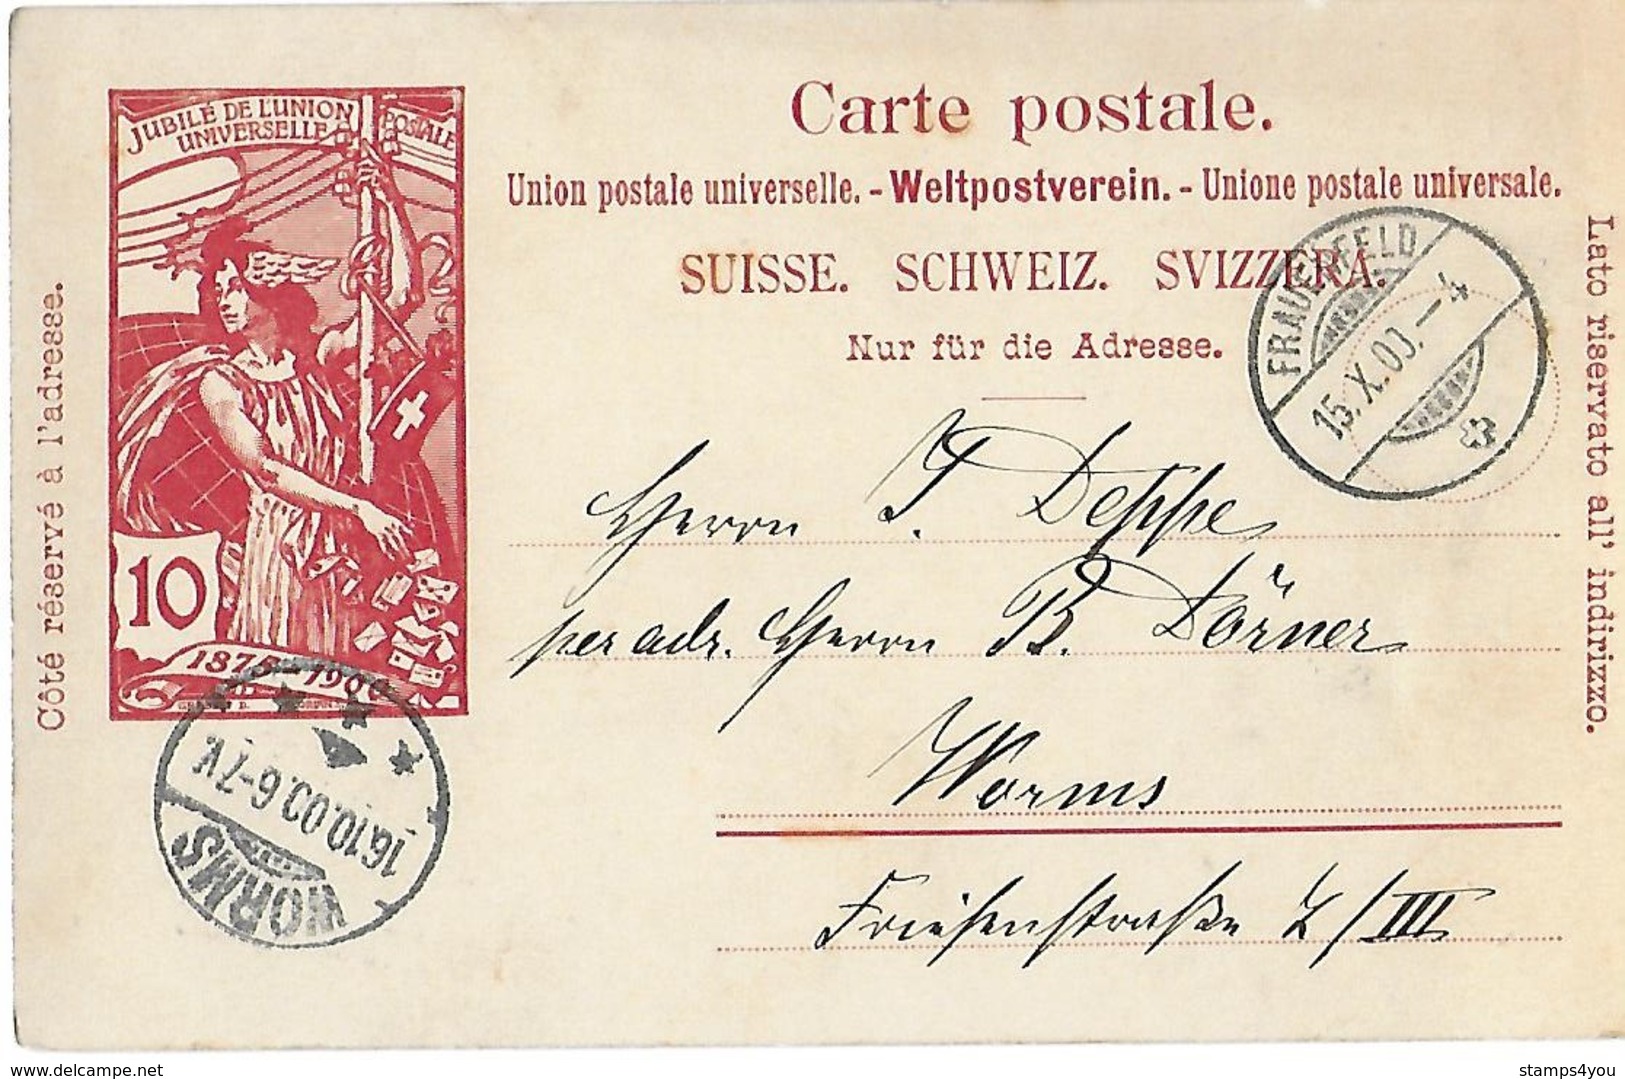 Carte postale.
Union postale universelle. - Weltpostverein. - Unione postale universale.
SUISSE. SCHWEIZ. SVIZZERA.
Nur für die Adresse.
Côté réservé à l'adresse.
Lato riservato all' indirizzo.
JUBILÉ DE L'UNION POSTALE
UNIVERSELLE
10
1875-1900
FRAUENFELD
15.X.00.-4
Herrn J. Deppe
per adr. Herrn B. Dörner
Worms
Friesenstraße 7/III
WORMS
16.10.00.6-7V.
stamps4you